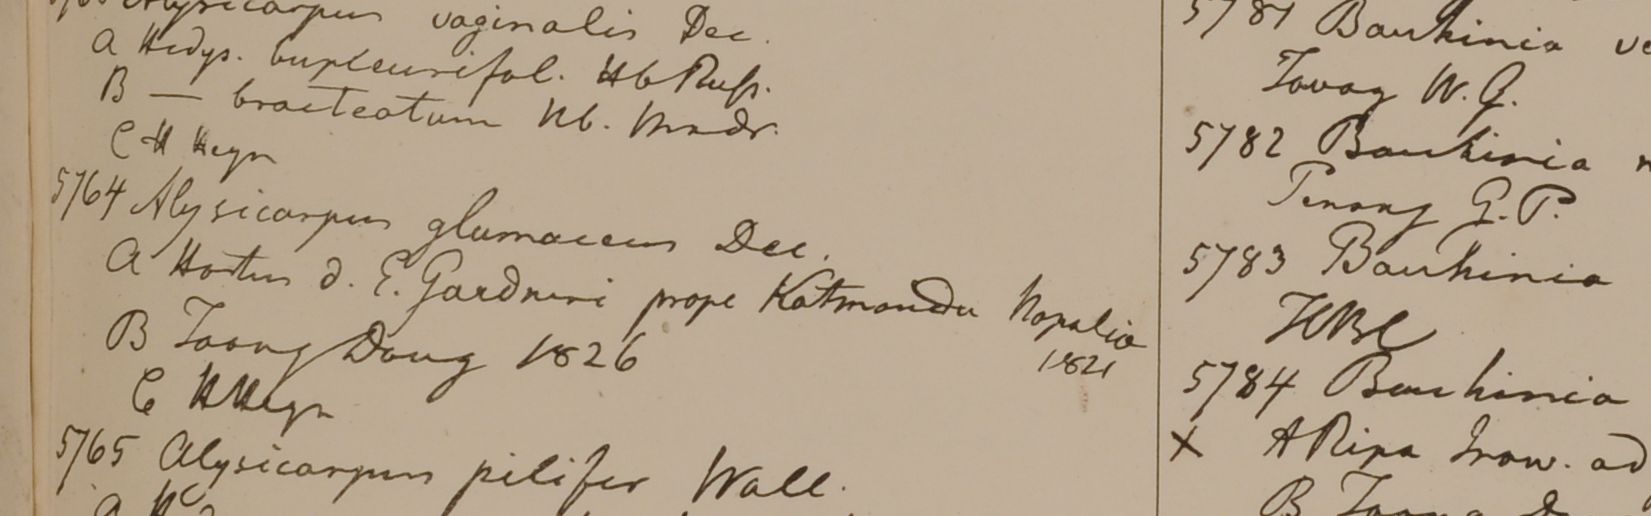 Alysicarpus vaginalis Dec.
A Hedys. bupleurifol. Hb Russ.
B — bracteatum Hb. Madr.
C H Heyn
5764 Alysicarpus glumaceus Dec.
A Hortus d. E. Gardneri prope Katmandu Napalia
1821
B Taong Doung 1826
C H Heyn
5765 Alysicarpus pilifer Wall.
5781 Bauhinia
Tavoy W. G.
5782 Bauhinia
Penang G. P.
5783 Bauhinia
HBC
5784 Bauhinia
x A Ripa Iraw. ad
B Taong D